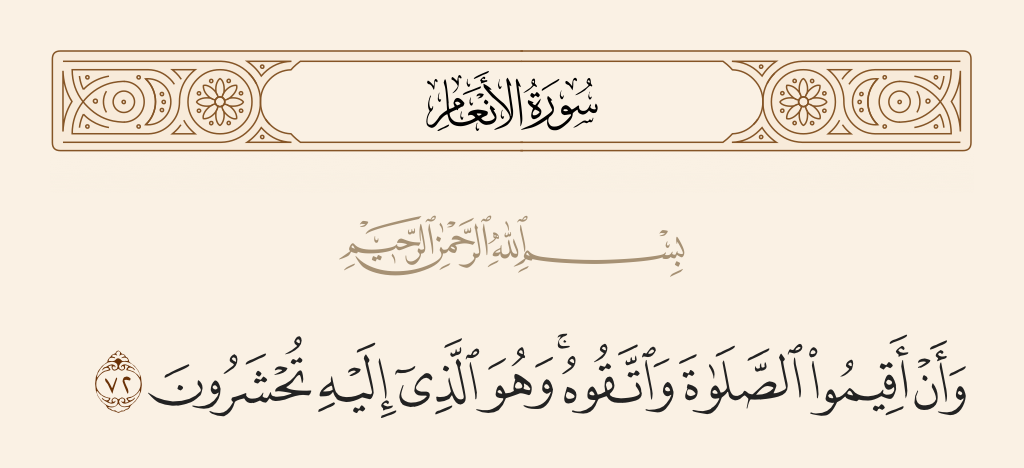 سُورَةُ الأَنْعَامِ
بِسْمِ ٱللَّهِ ٱلرَّحْمَٰنِ ٱلرَّحِيمِ
وَأَنْ أَقِيمُوا۟ ٱلصَّلَوٰةَ وَٱتَّقُوهُ ۚ وَهُوَ ٱلَّذِىٓ إِلَيْهِ تُحْشَرُونَ ٧٢